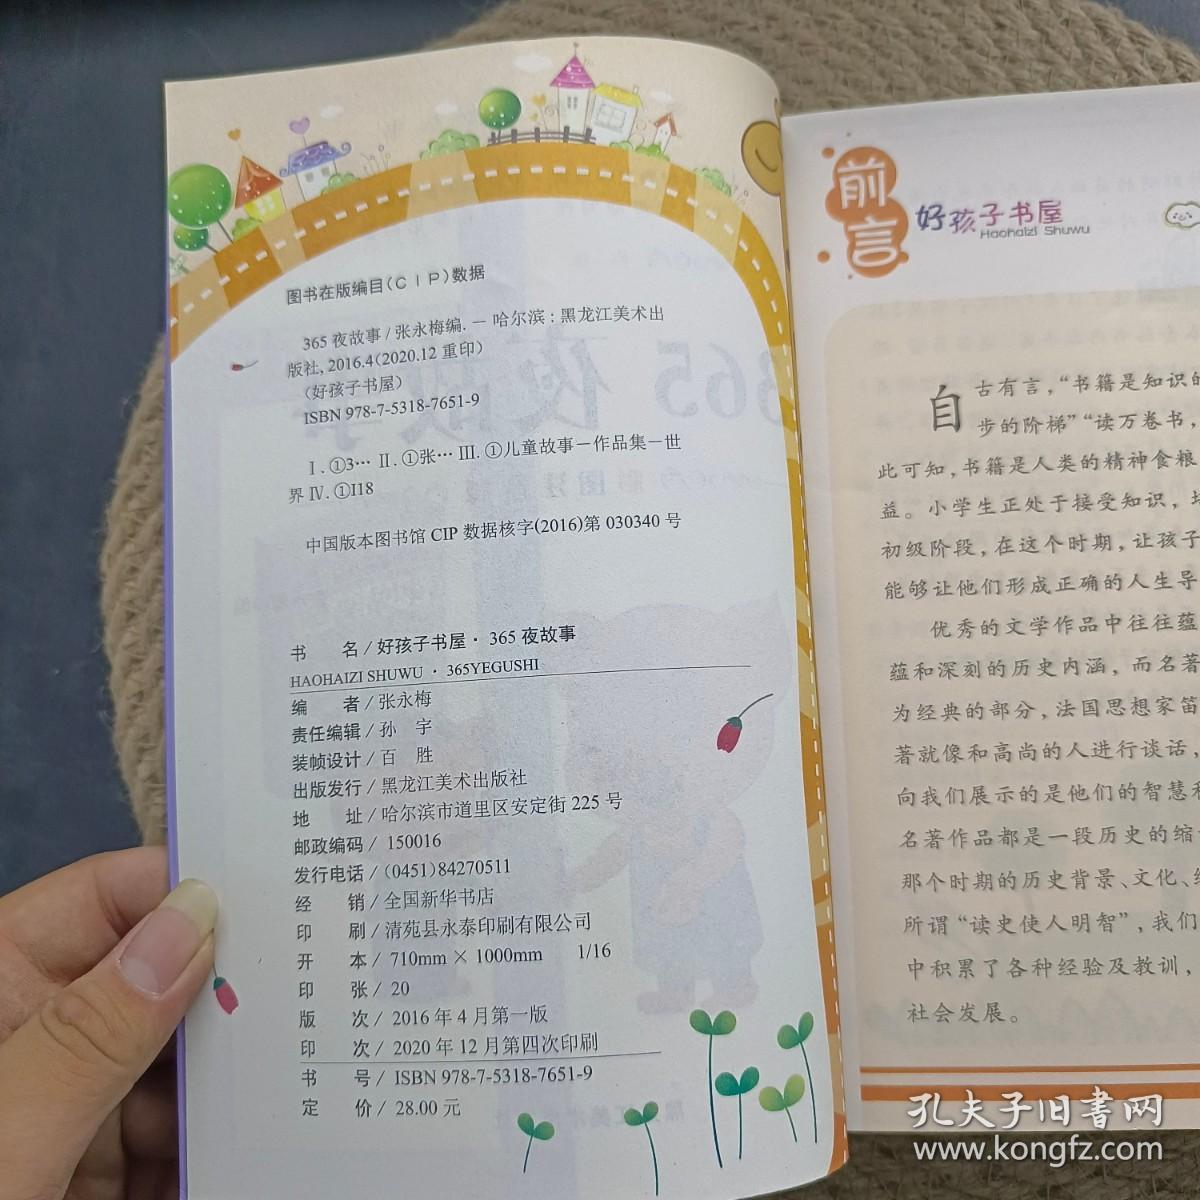 图书在版编目(CIP)数据
365 夜故事/张永梅编. — 哈尔滨:黑龙江美术出
版社,2016.4(2020.12 重印)
(好孩子书屋)
ISBN 978-7-5318-7651-9
Ⅰ.①3… Ⅱ.①张… Ⅲ.①儿童故事—作品集—世
界 Ⅳ.①I18
中国版本图书馆 CIP 数据核字(2016)第 030340 号
书 名/好孩子书屋·365 夜故事
HAOHAIZI SHUWU · 365YEGUSHI
编 者/张永梅
责任编辑/孙 宇
装帧设计/百 胜
出版发行/黑龙江美术出版社
地 址/哈尔滨市道里区安定街 225 号
邮政编码/150016
发行电话/(0451)84270511
经 销/全国新华书店
印 刷/清苑县永泰印刷有限公司
开 本/710mm×1000mm 1/16
印 张/20
版 次/2016 年 4 月第一版
印 次/2020 年 12 月第四次印刷
书 号/ISBN 978-7-5318-7651-9
定 价/28.00 元
前言
好孩子书屋
Haohaizi Shuwu
自古有言,“书籍是知识的
步的阶梯”“读万卷书,
此可知,书籍是人类的精神食粮
益。小学生正处于接受知识,
初级阶段,在这个时期,让孩子
能够让他们形成正确的人生导
优秀的文学作品中往往蕴
蕴和深刻的历史内涵,而名著
为经典的部分,法国思想家笛
著就像和高尚的人进行谈话,
向我们展示的是他们的智慧和
名著作品都是一段历史的缩
那个时期的历史背景、文化、
所谓“读史使人明智”,我们
中积累了各种经验及教训,
社会发展。
孔夫子旧书网
www.kongfz.com